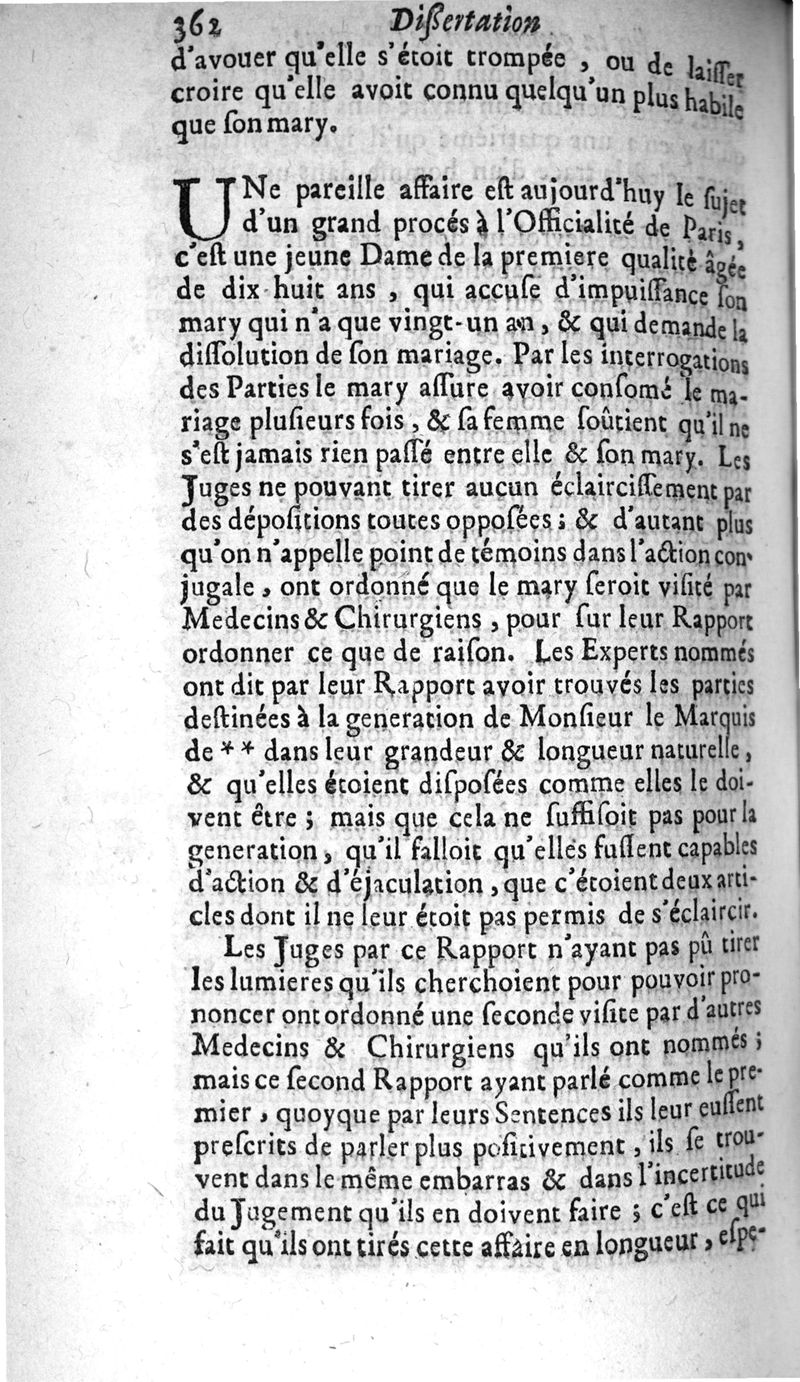 362 Diſſertation
d'avouer qu'elle s'étoit trompée , ou de laiſſer
croire qu'elle avoit connu quelqu'un plus habile
que ſon mary.
UNe pareille affaire eſt aujourd'huy le ſujet
d'un grand procés à l'Officialité de Paris,
c'eſt une jeune Dame de la premiere qualité âgée
de dix huit ans , qui accuſe d'impuiſſance ſon
mary qui n'a que vingt-un an , & qui demande la
diſſolution de ſon mariage. Par les interrogations
des Parties le mary aſſure avoir conſomé le ma-
riage pluſieurs fois , & ſa femme ſoûtient qu'il ne
s'eſt jamais rien paſſé entre elle & ſon mary. Les
Juges ne pouvant tirer aucun éclairciſſement par
des dépoſitions toutes oppoſées ; & d'autant plus
qu'on n'appelle point de témoins dans l'action con-
jugale , ont ordonné que le mary ſeroit viſité par
Medecins & Chirurgiens , pour ſur leur Rapport
ordonner ce que de raiſon. Les Experts nommés
ont dit par leur Rapport avoir trouvés les parties
deſtinées à la generation de Monſieur le Marquis
de * * dans leur grandeur & longueur naturelle ,
& qu'elles étoient diſpoſées comme elles le doi-
vent être ; mais que cela ne ſuffiſoit pas pour la
generation , qu'il falloit qu'elles fuſſent capables
d'action & d'éjaculation , que c'étoient deux arti-
cles dont il ne leur étoit pas permis de s'éclaircir.
Les Juges par ce Rapport n'ayant pas pû tirer
les lumieres qu'ils cherchoient pour pouvoir pro-
noncer ont ordonné une ſeconde viſite par d'autres
Medecins & Chirurgiens qu'ils ont nommés ;
mais ce ſecond Rapport ayant parlé comme le pre-
mier , quoyque par leurs Sentences ils leur euſſent
preſcrits de parler plus poſitivement , ils ſe trou-
vent dans le même embarras & dans l'incertitude
du Jugement qu'ils en doivent faire ; c'eſt ce qui
fait qu'ils ont tirés cette affaire en longueur , eſpe-